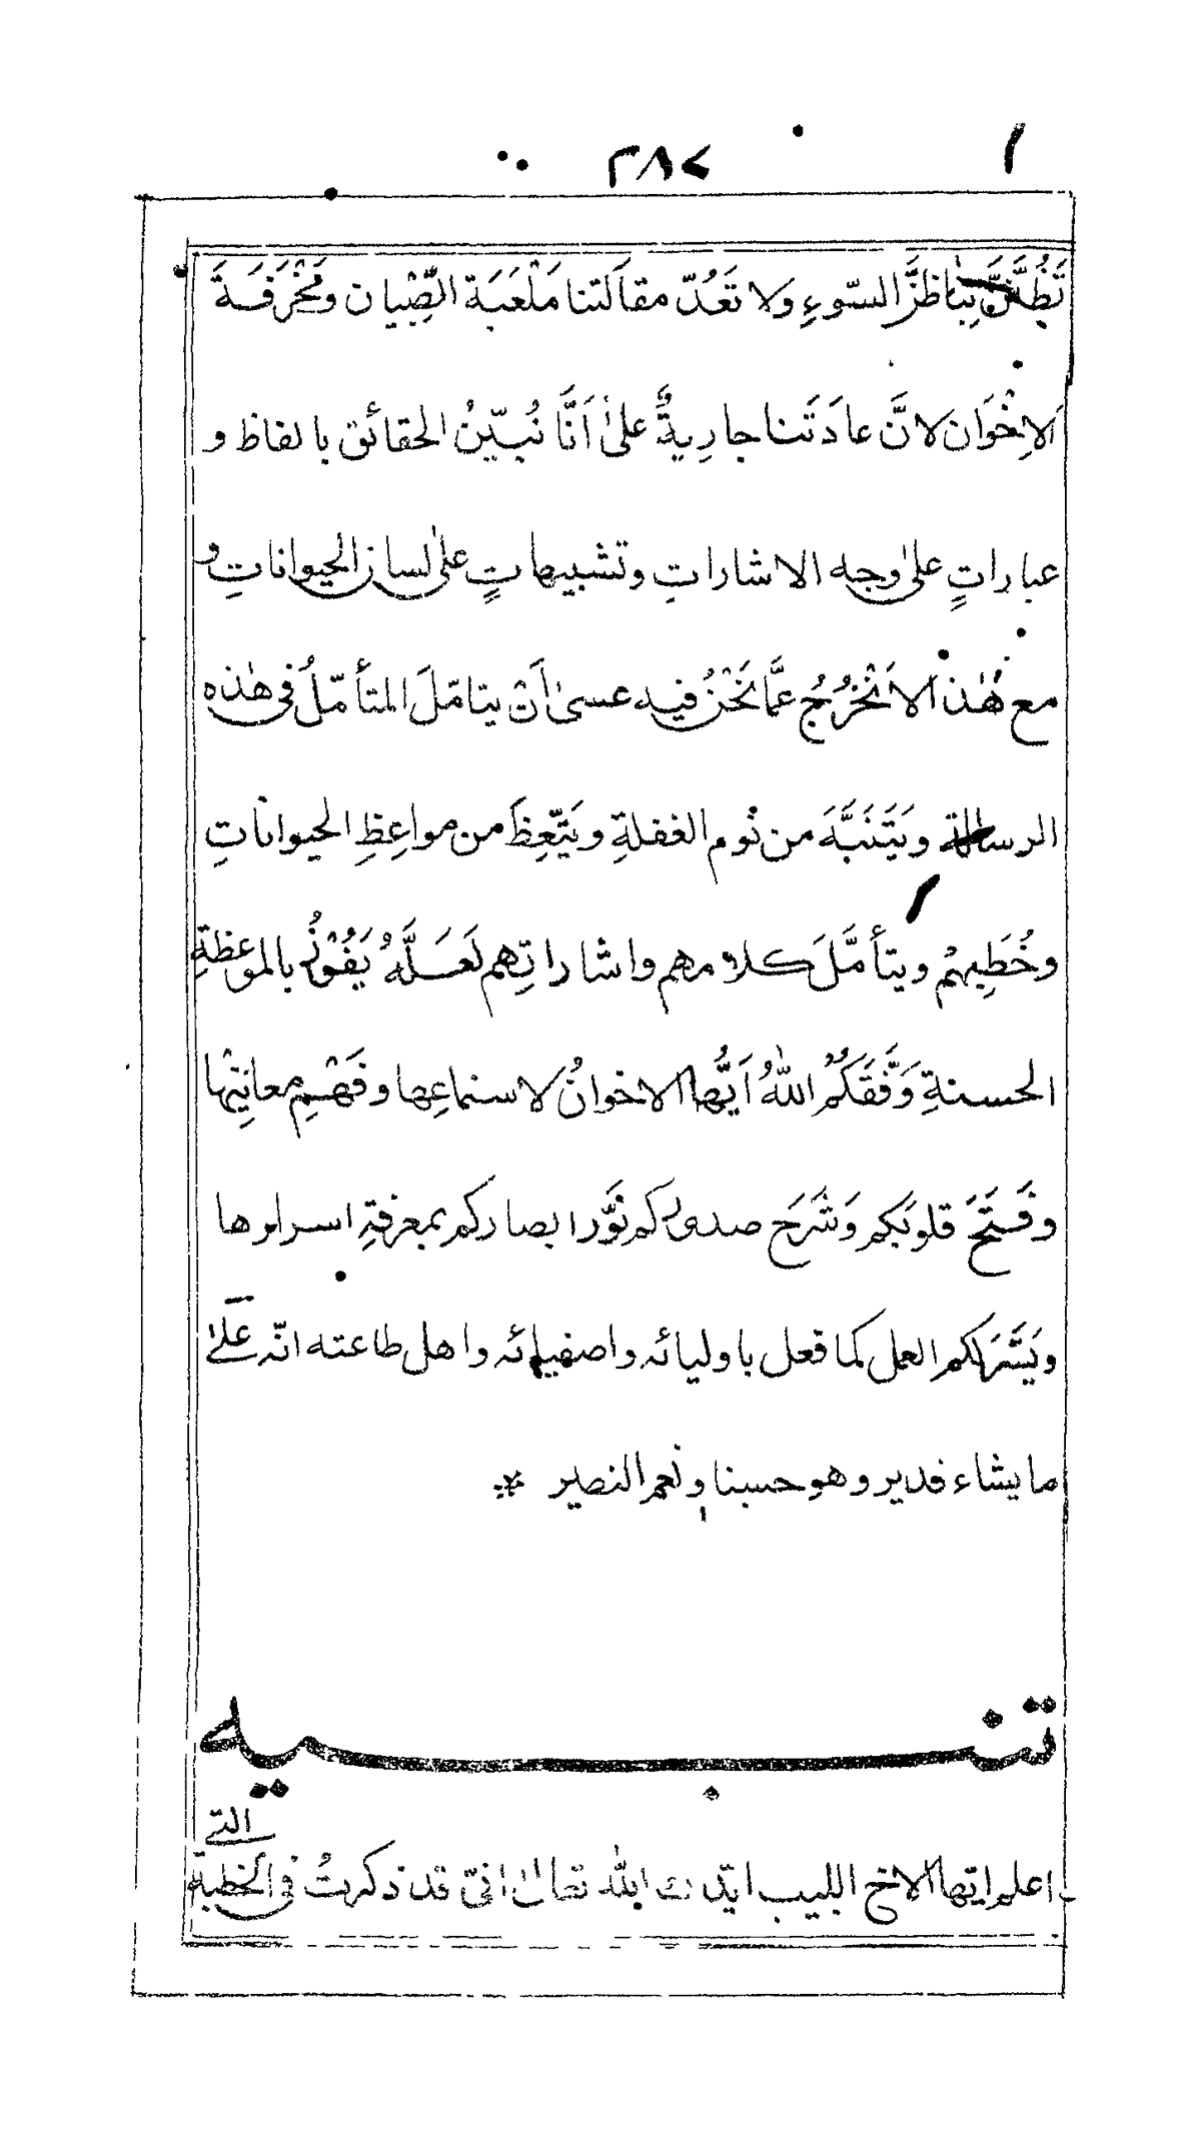 ٢٨٧
تَظُنَّنَّ بِنا ظَنَّ السّوءِ ولا تَعُدّ مقالَتنا مَلْعَبَة الصِّبْيان ومَخْرَفَةَ
الاِخْوَان لانَّ عادَتَنا جارِيةٌ علىٰ اَنَّا نُبيّنُ الحقائق بالفاظ و
عباراتٍ علىٰ وجه الاشاراتِ وتشبيهاتٍ علىٰ لسان الحيواناتِ و
مع هٰذا لا نَخْرُجُ عمَّا نَحْنُ فيه عسىٰ اَنْ يتامّلَ المتأمّلُ فى هٰذه
الرسالة ويَتَنَبَّهَ من نوم الغفلةِ ويَتَّعِظَ من مواعِظِ الحيواناتِ
وخُطَبِهِمْ ويتأمَّلَ كلامهم واشاراتِهم لَعَلَّهُ يَفُوْزُ بالموعظةِ
الحسنةِ وَفَّقَكُمُ اللّٰهُ اَيُّها الاخوانُ لاستماعِها وفَهْمِ معانِيْها
وفَتَحَ قلوبَكم وَشَرَحَ صدوركم نَوَّر ابصاركم بمعرفةِ اسرارها
ويَسَّرَ لكم العمل كما فعل باوليائه واصفيائه واهل طاعته انّه علىٰ
ما يشاء قدير وهو حسبنا ونعم النصير *
تنبيه
اعلم ايّها الاخ اللبيب ايّدك اللّٰه تعالىٰ انّى قد ذكرتُ فى الخطبة التى